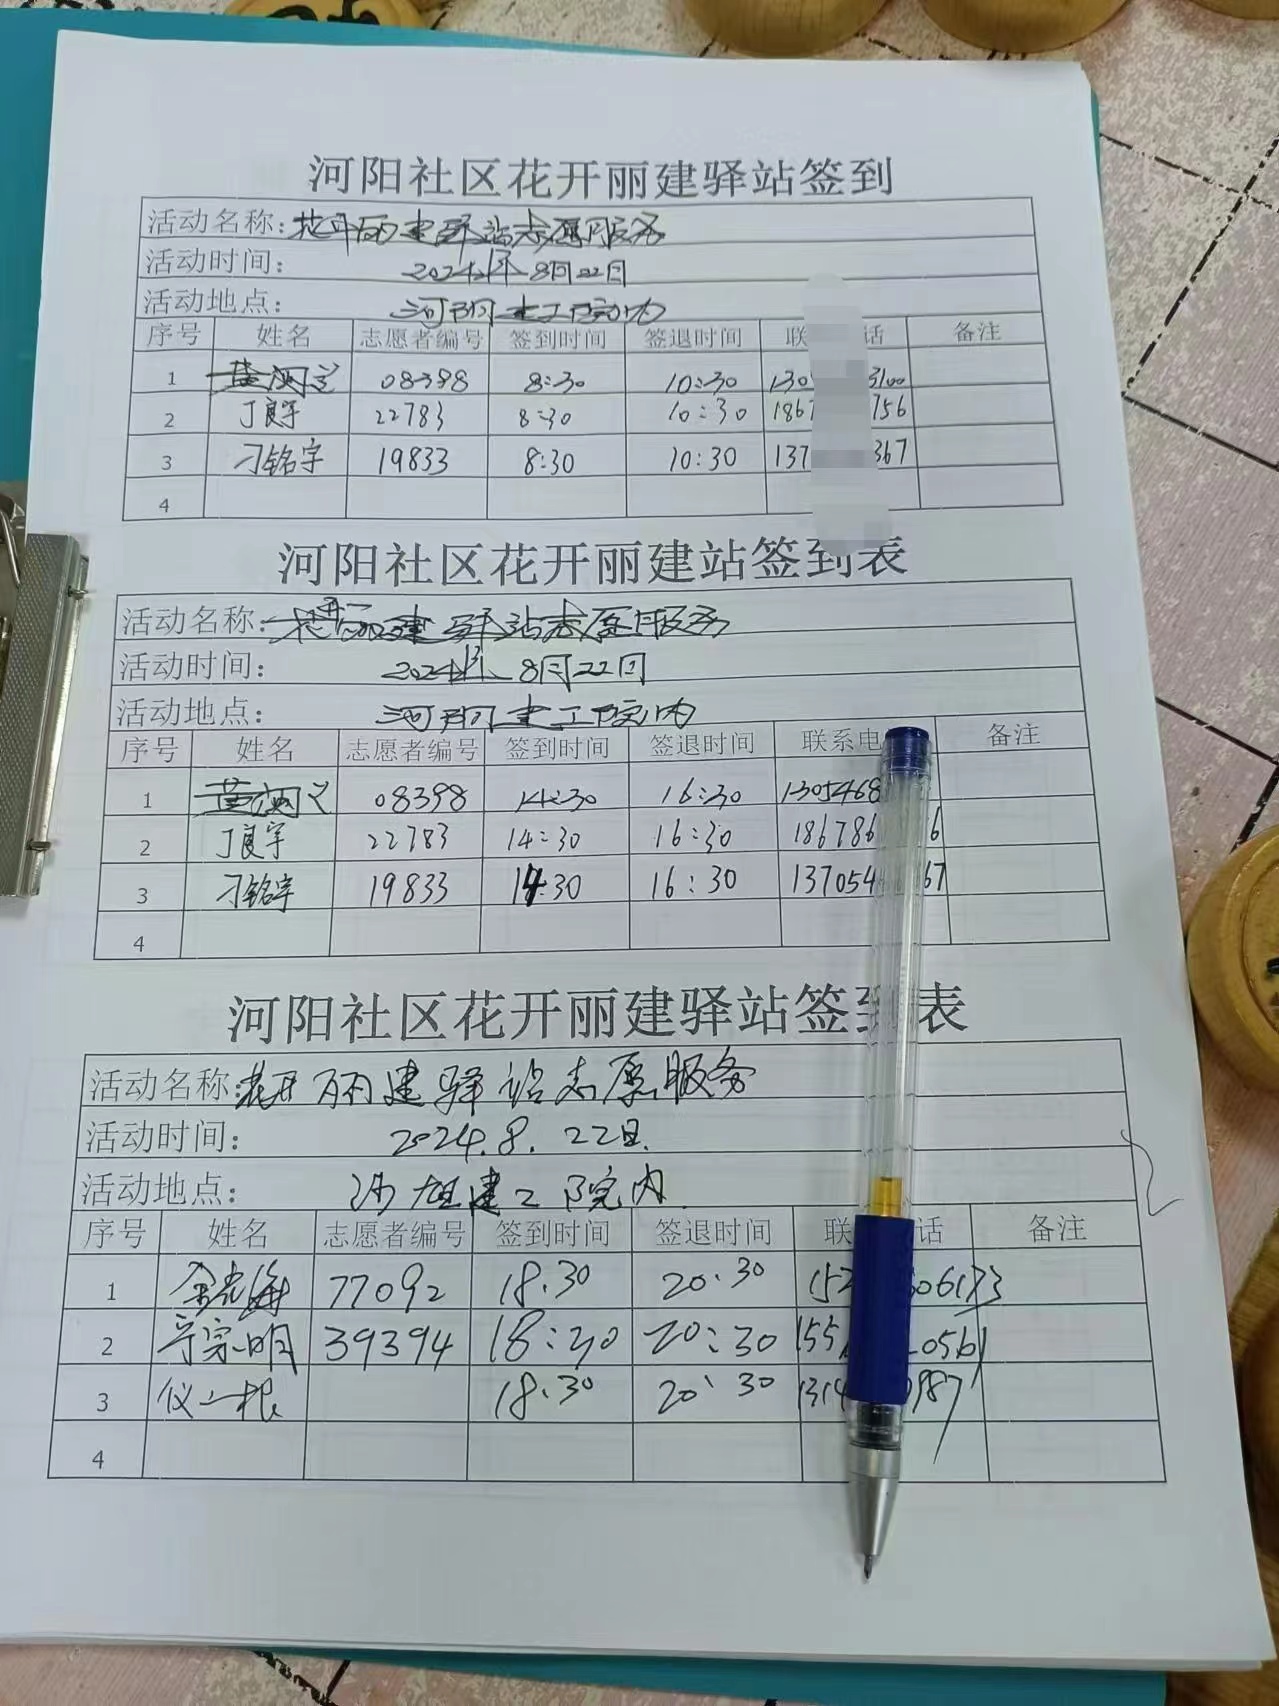 河阳社区花开丽建驿站签到
活动名称：花开丽建驿站志愿服务
活动时间： 2024年8月22日
活动地点： 河阳建工院内
序号 姓名 志愿者编号 签到时间 签退时间 联 话 备注
1 08398 8:30 10:30 130 3100
2 丁良宇 22783 8:30 10:30 1867 756
3 刁铭宇 19833 8:30 10:30 137 367
4
河阳社区花开丽建站签到表
活动名称：花开丽建驿站志愿服务
活动时间： 2024年8月22日
活动地点： 河阳建工院内
序号 姓名 志愿者编号 签到时间 签退时间 联系电 备注
1 08398 14:30 16:30 1305468
2 丁良宇 22783 14:30 16:30 186786 6
3 刁铭宇 19833 14:30 16:30 137054 67
4
河阳社区花开丽建驿站签到表
活动名称：花开丽建驿站志愿服务
活动时间： 2024.8.22日.
活动地点： 建工院内.
序号 姓名 志愿者编号 签到时间 签退时间 联 话 备注
1 77092 18:30 20:30 152 06173
2 宗明 39394 18:30 20:30 155 0561
3 仪一根 18:30 20:30 1314 987
4